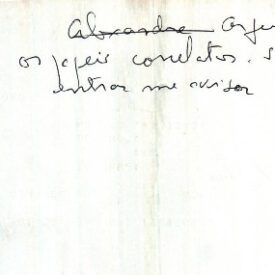 ~~Alexandre~~
os papeis correlatos. s
entrar me avisar